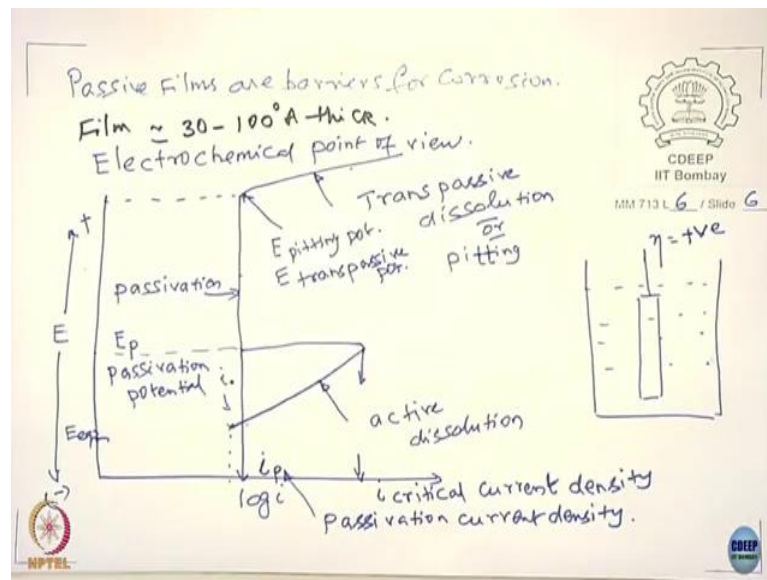 Passive Films are barriers for Corrosion.
Film ≃ 30-100°A thick.
Electrochemical point of view.
CDEEP
IIT Bombay
MM 713 L 6 / Slide 6
+
Transpassive
dissolution
or
pitting
E pitting pot.
E transpassive
pot.
η = +ve
passivation
E
Ep
passivation
potential
i.
active
dissolution
Eeqm
(-)
ip
log i
i critical current density
passivation current density.
NPTEL
CDEEP
IIT BOMBAY